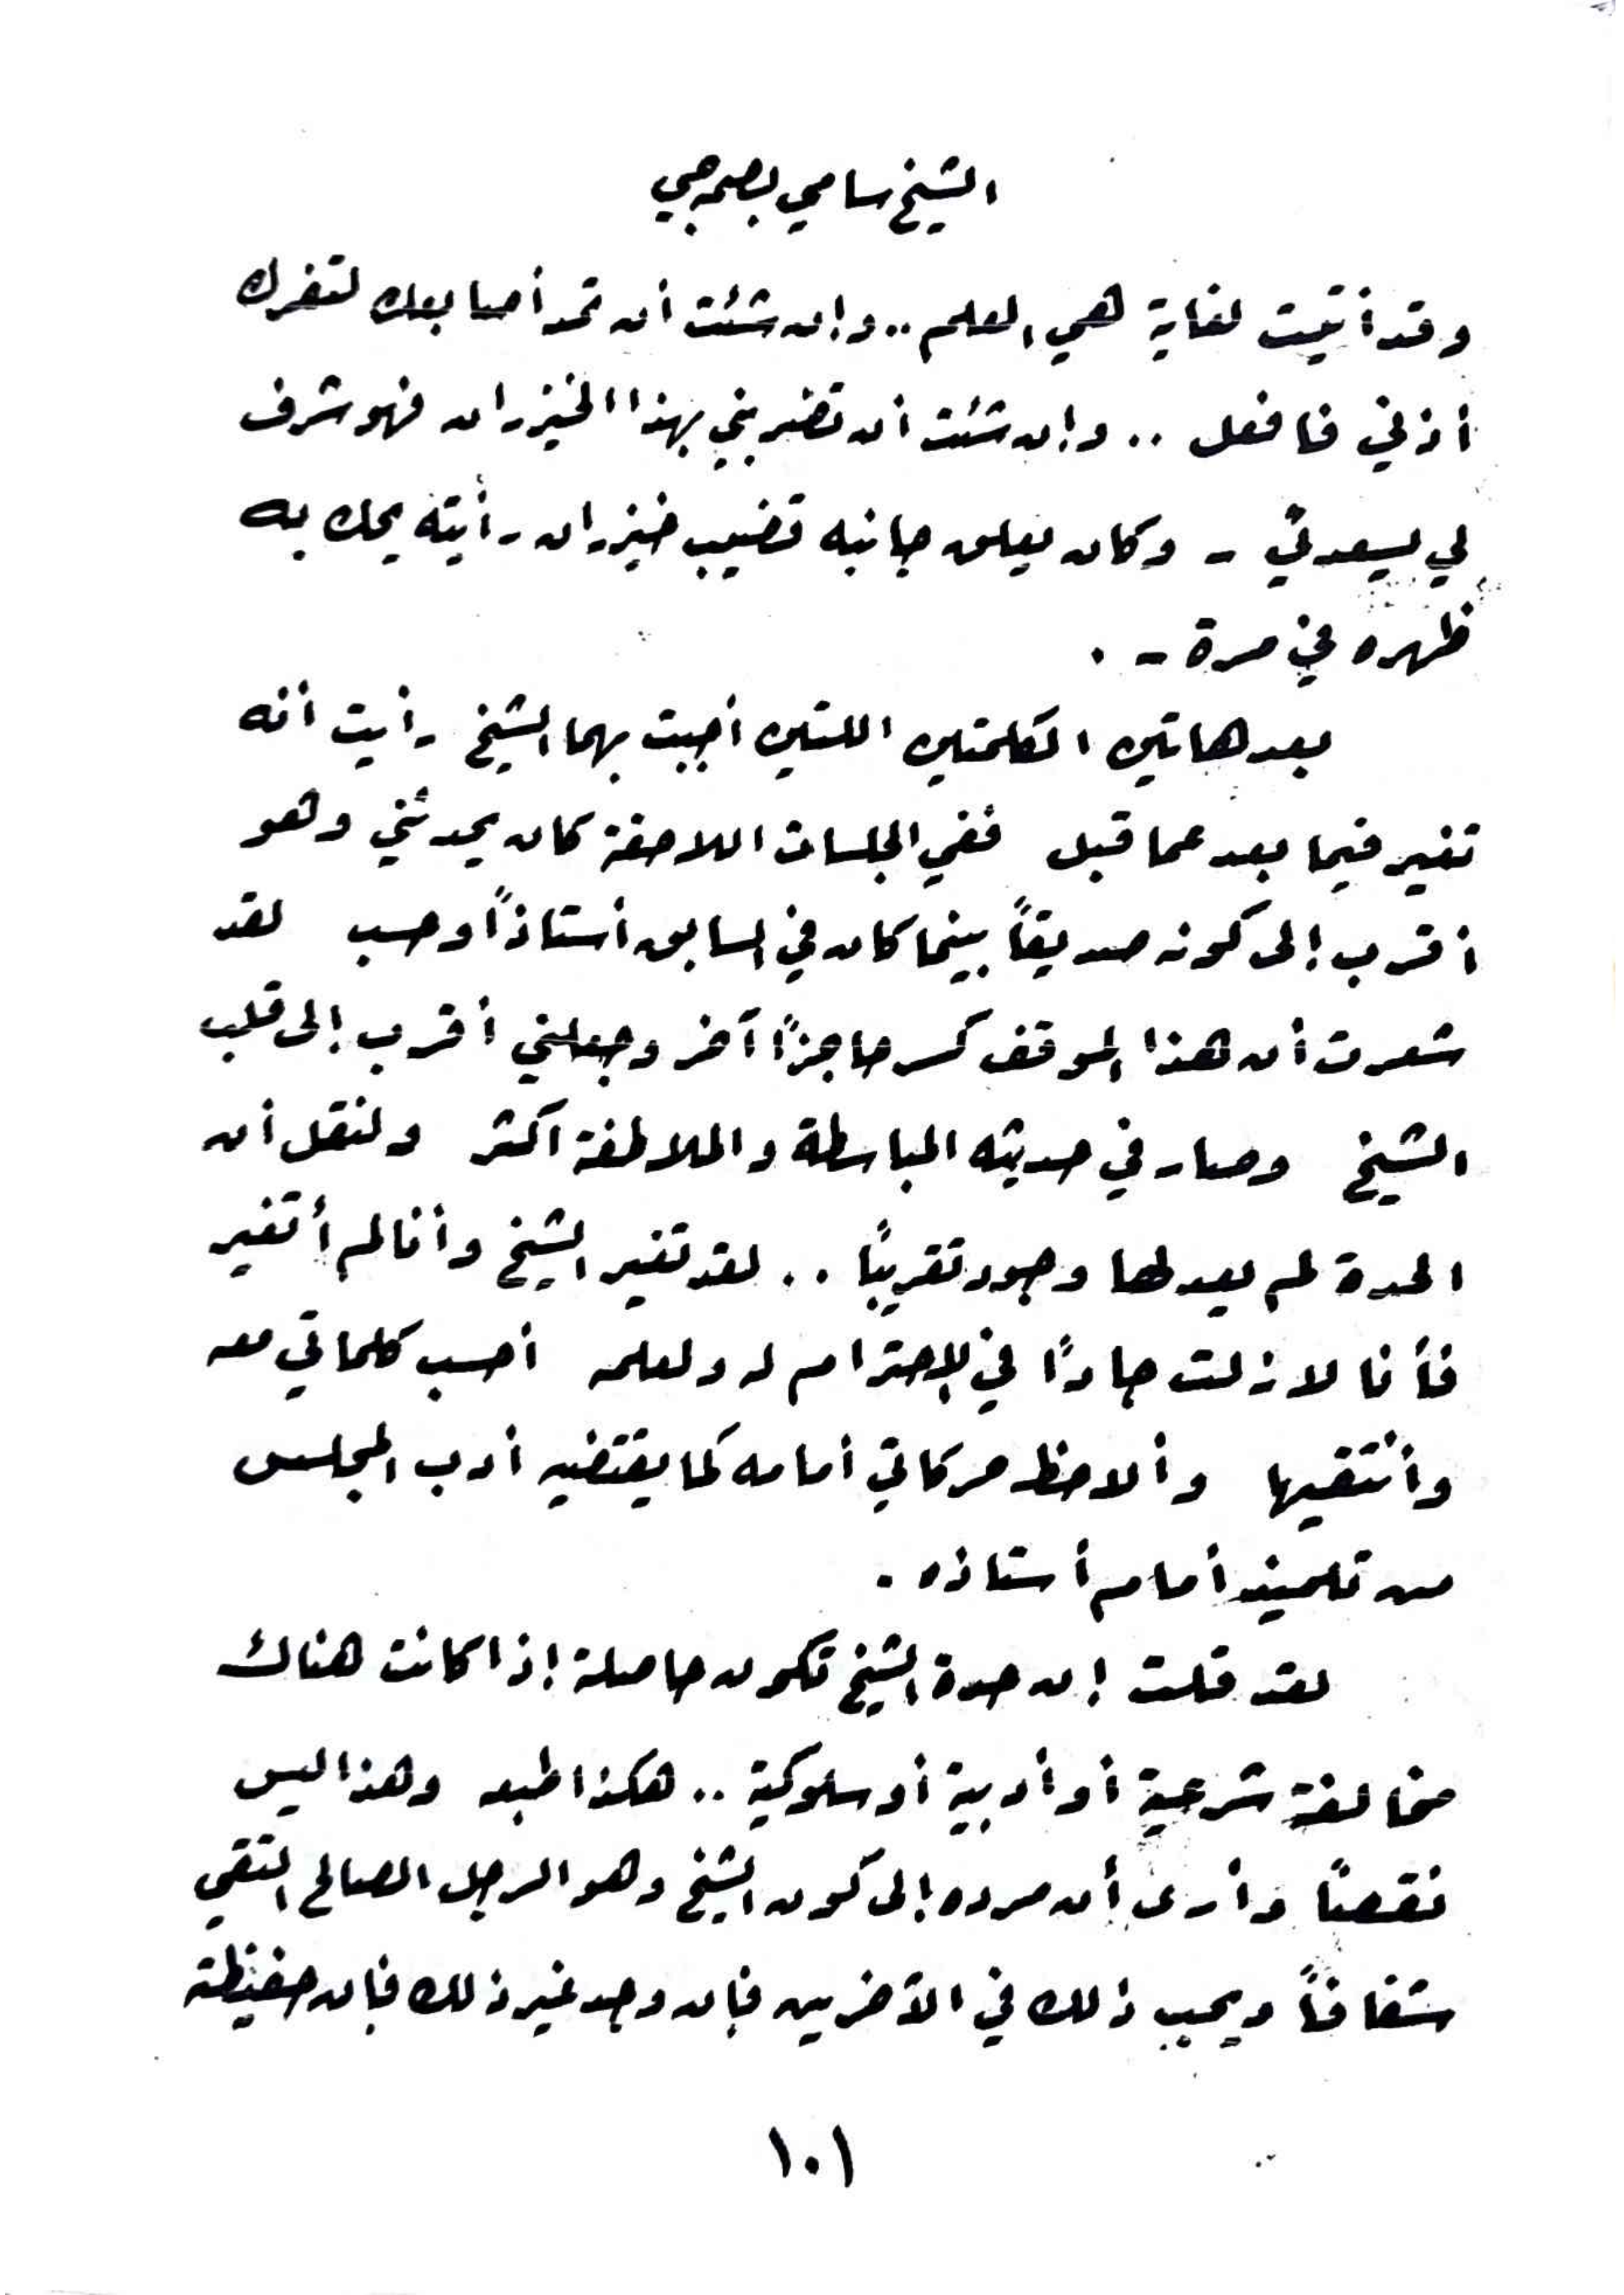 الشيخ سامي بصمه جي
وقد أتيت لغاية هي العلم .. وإن شئت أن تمد أصابعك لتفرك
أذني فافعل .. وإن شئت أن تضربني بهذا الخيزران فهو شرف
لي يسعدني - وكان يعلق جانبه قضيب خيزران رأيته يحك به
ظهره في مرة - .
بعد هاتين الكلمتين اللتين أجبت بهما الشيخ رأيت أنه
تغير فيما بعد عما قبل ففي الجلسات اللاحقة كان يحدثني وهو
أقرب إلى كونه صديقاً بينما كان في السابق أستاذاً وحسب لقد
شعرت أن هذا الموقف كسر حاجزاً آخر وجعلني أقرب إلى قلب
الشيخ وصار في حديثه المباسطة والملاطفة أكثر ولنقل أن
الحدة لم يعد لها وجود تقريباً .. لقد تغير الشيخ وأنا لم أتغير
فأنا لا زلت جاداً في الإحترام له ولعلمه أحسب كلماتي معه
وأنتقيها وألاحظ حركاتي أمامه كما يقتضيه أدب المجلس
من تلميذ أمام أستاذه .
لقد قلت إن حدة الشيخ تكون حاصلة إذا كانت هناك
مخالفة شرعية أو أدبية أو سلوكية .. هكذا طبعه وهذا ليس
نقصاً وأرى أن مرده إلى كون الشيخ وهو الرجل الصالح التقي
شفافاً ويحب ذلك في الآخرين فإن وجد غير ذلك فإن حفيظة
١٠١